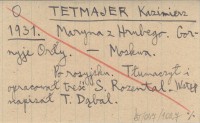 O TETMAJER Kazimierz
1931. Maryna z Hrubego. Gor-
nyje Orły. Moskwa.
Po rosyjsku. Tłumaczył i
opracował treść S. Rozental. Wstęp
napisał T. Dąbal.